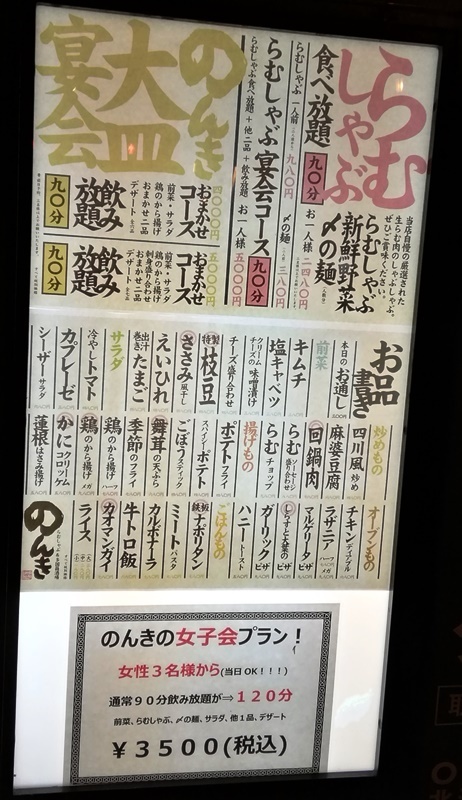 らむしゃぶ
当店自慢の厳選された
生らむ肉のしゃぶしゃぶ。
ぜひご賞味ください。
らむしゃぶ
新鮮野菜
〆の麺
お一人様 二四八〇円
食べ放題 九〇分
らむしゃぶ 一人前 九八〇円
〆の麺 三八〇円
らむしゃぶ宴会コース 九〇分
らむしゃぶ食べ放題+他二品+飲み放題 お一人様 五〇〇〇円
のんき
大皿
宴会
四〇〇〇円
おまかせ
コース
前菜・サラダ
鶏のから揚げ
おまかせ二品
デザート 全六品
飲み
放題
九〇分
五〇〇〇円
おまかせ
コース
前菜・サラダ
刺身盛り合わせ
鶏のから揚げ
おまかせ二品
デザート
飲み
放題
九〇分
お品書き
本日のお通し
前菜
キムチ
塩キャベツ
クリームチーズの味噌漬け
チーズ盛り合わせ
特製枝豆
ささみ風干し
えいひれ
出汁巻きたまご
サラダ
冷やしトマト
カプレーゼ
シーザーサラダ
炒めもの
四川風炒め
麻婆豆腐
回鍋肉
らむソーセージ盛り合わせ
らむチョップ
揚げもの
ポテトフライ
スパイシーポテト
ごぼうスティック
舞茸の天ぷら
季節のフライ
鶏のから揚げ ハーフ
鶏のから揚げ メガ
かにクリームコロッケ
蓮根はさみ揚げ
オーブンもの
チキンディアブル
ラザニア ハーフ メガ
マルゲリータピザ
しらすと大葉のピザ
ガーリックピザ
ハニートースト
ごはんもの
鉄板ナポリタン
ミートパスタ
カルボナーラ
牛トロ飯
カオマンガイ
ライス
のんき
のんきの女子会プラン!
女性3名様から(当日OK!!!)
通常90分飲み放題が⇒120分
前菜、らむしゃぶ、〆の麺、サラダ、他1品、デザート
¥3500(税込)